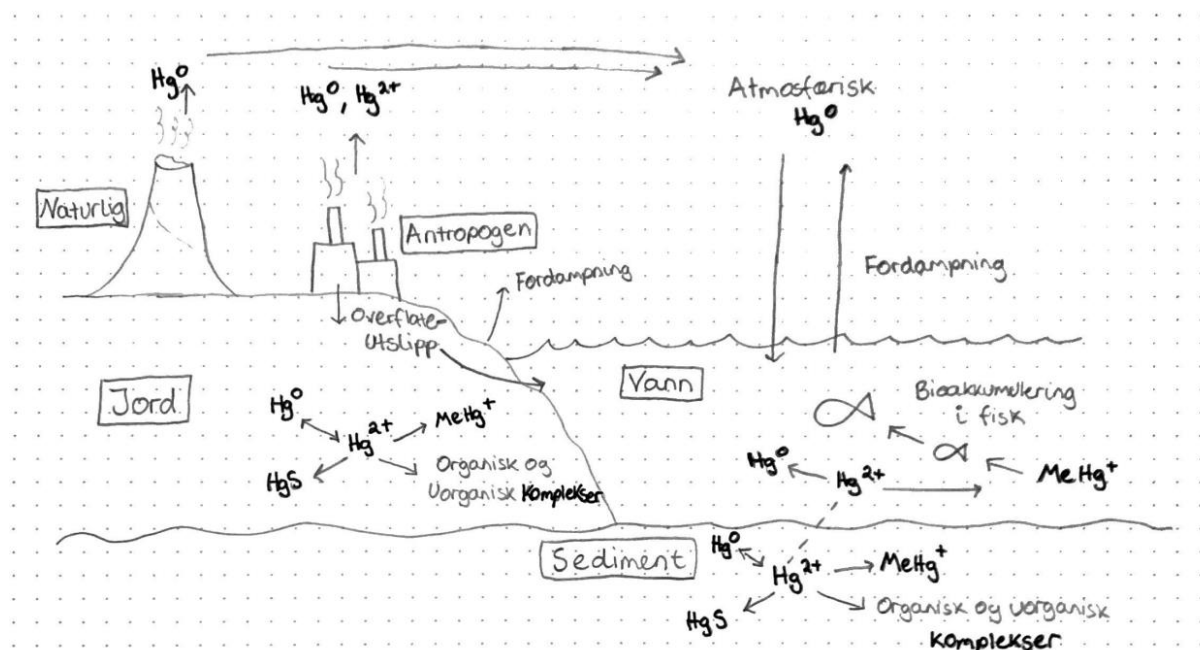 Hg⁰
Hg⁰, Hg²⁺
Atmosfærisk
Hg⁰
Naturlig
Antropogen
Fordampning
Fordampning
Overflate-
utslipp
Jord
Vann
Hg⁰
Hg²⁺
MeHg⁺
HgS
Organisk og
uorganisk komplekser
Bioakkumulering
i fisk
Hg⁰
Hg²⁺
MeHg⁺
Sediment
Hg⁰
Hg²⁺
MeHg⁺
HgS
Organisk og uorganisk
komplekser